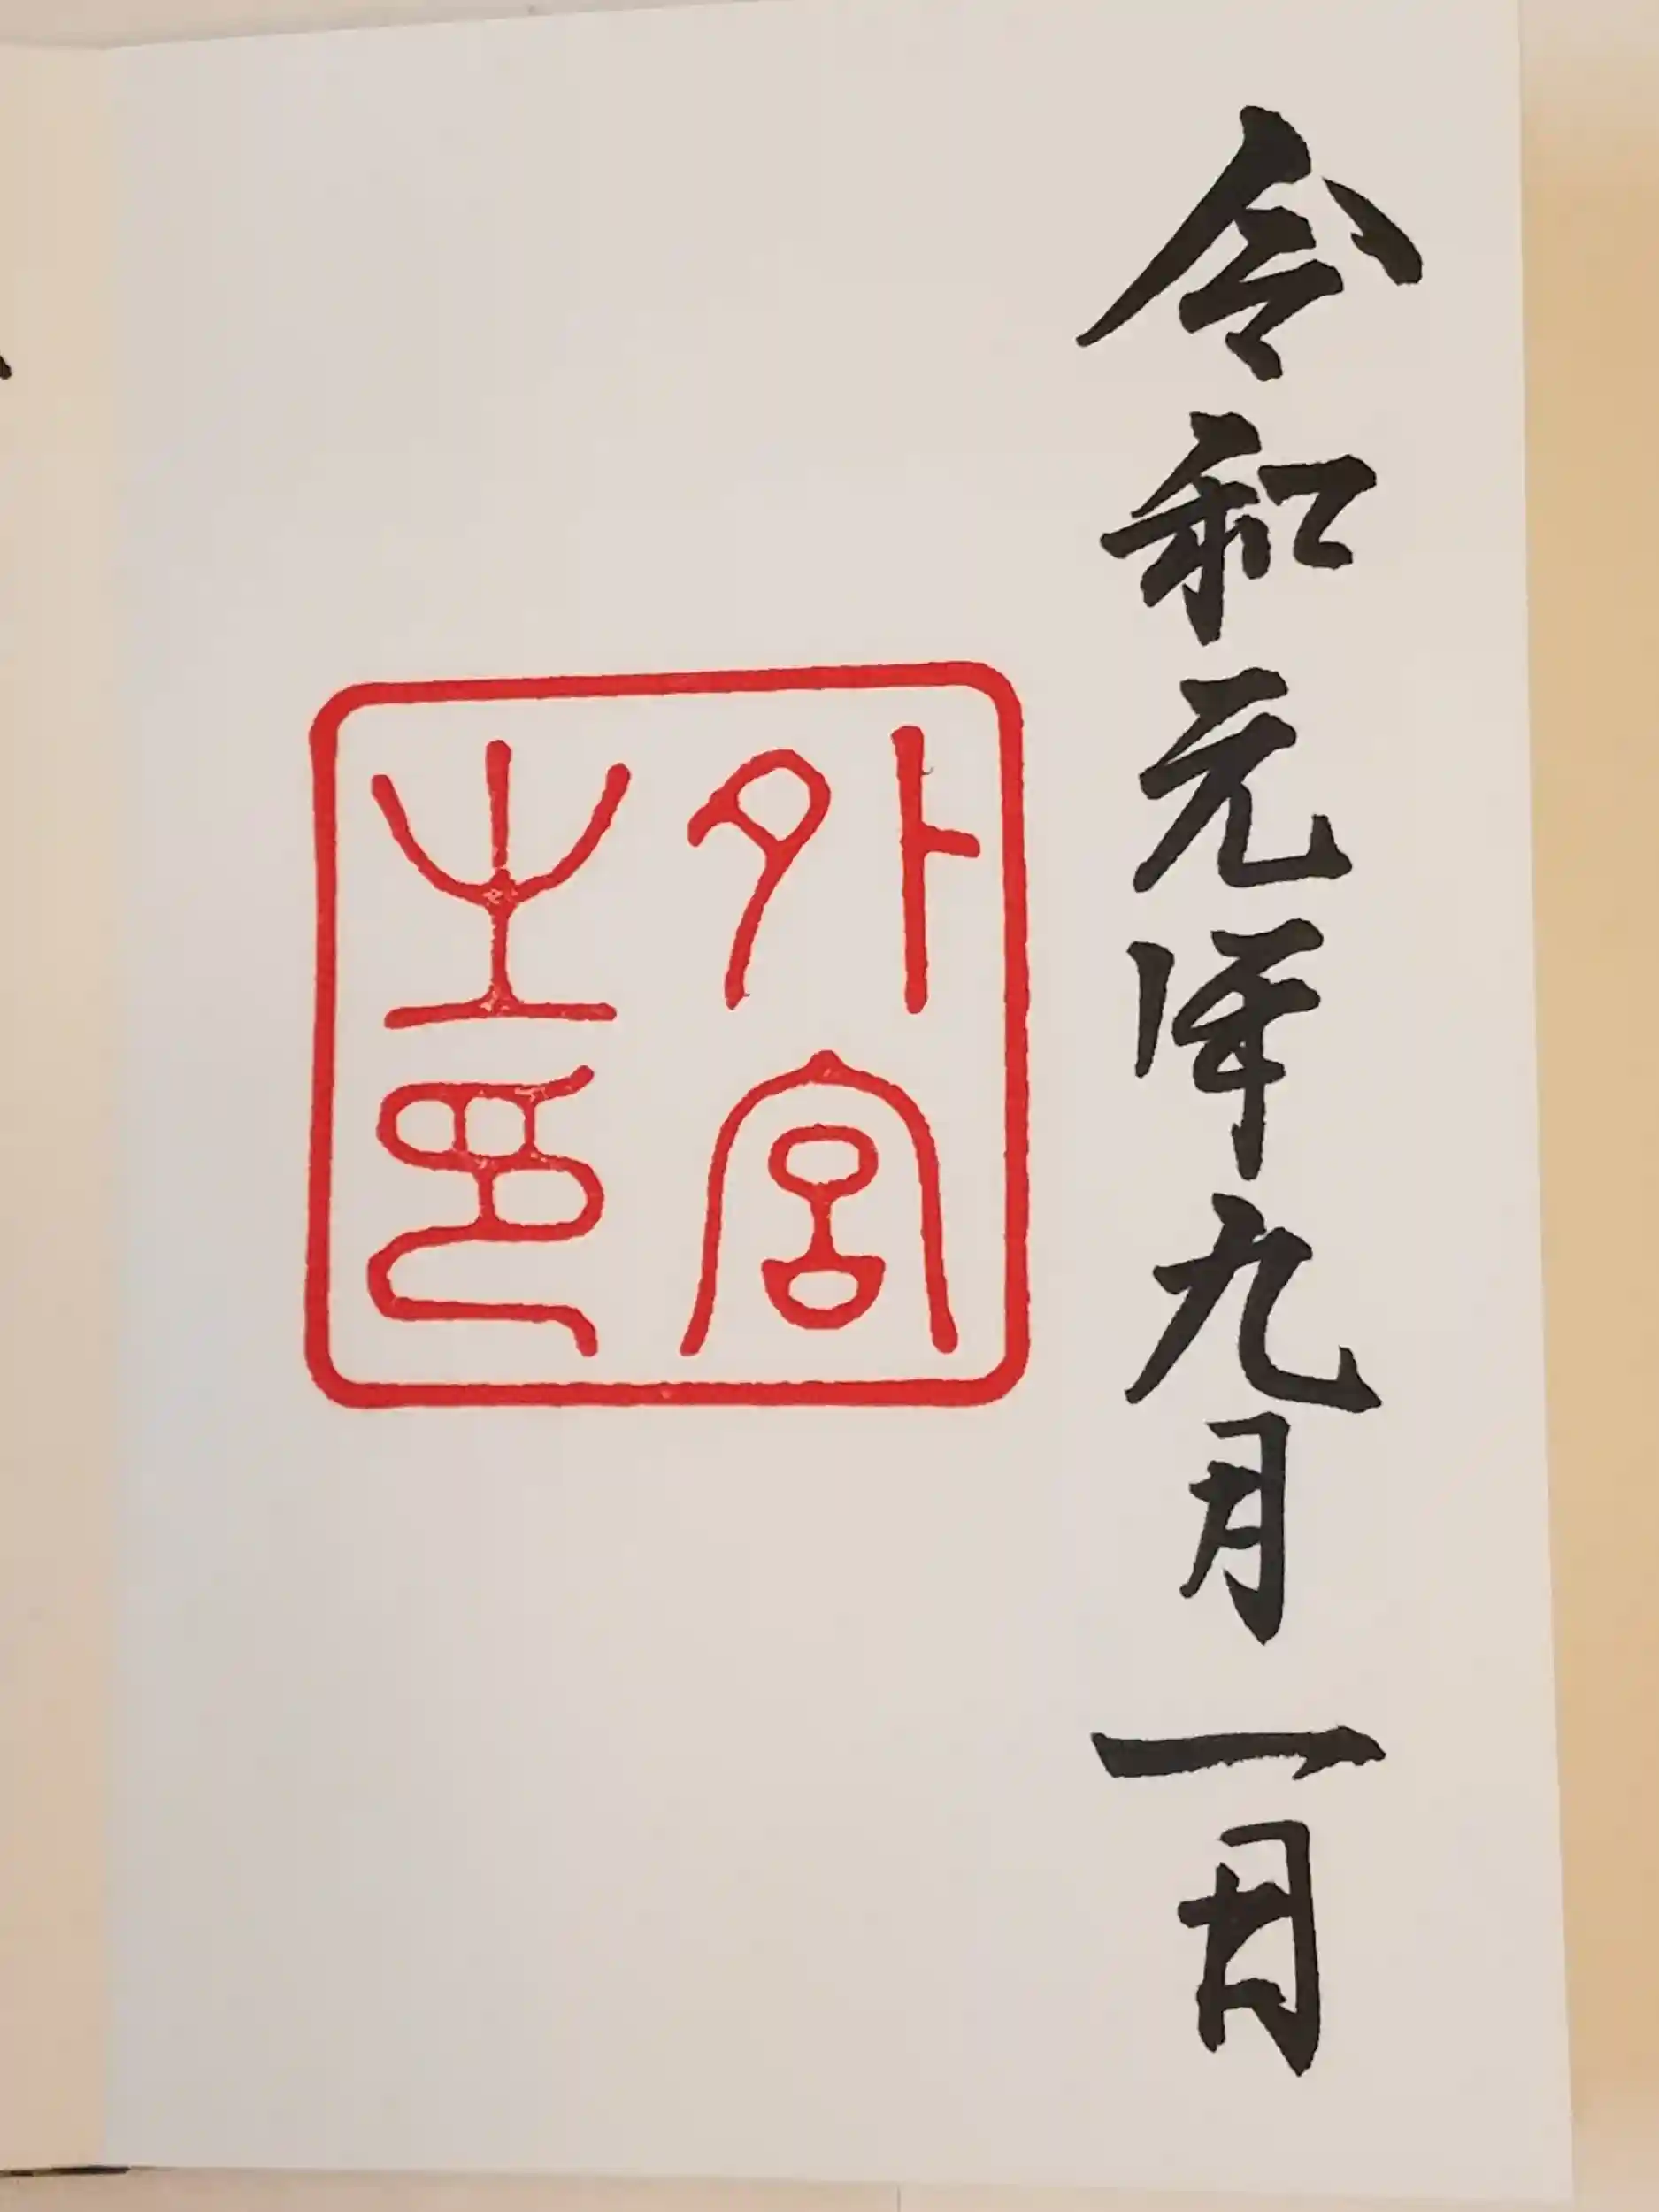 令和元年九月一日
外宮
之印